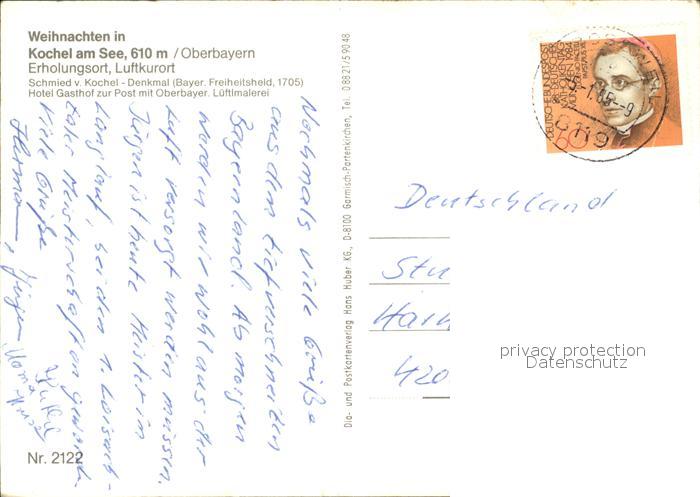 Weihnachten in
Kochel am See, 610 m / Oberbayern
Erholungsort, Luftkurort
Schmied v. Kochel - Denkmal (Bayer. Freiheitsheld, 1705)
Hotel Gasthof zur Post mit Oberbayer. Lüftlmalerei
Nochmals viele Grüße
aus dem tiefverschneiten
Bayernland. Ab morgen
werden wir wohl aus der
Luft versorgt werden müssen.
Jürgen ist heute Meister im
Langlauf, bei den 1. Loisach-
taler Meisterschaften geword.
Viele Grüße
Hermann, Jürgen
Nr. 2122
Dia- und Postkartenverlag Hans Huber KG., D-8100 Garmisch-Partenkirchen, Tel. 08821/59048
DEUTSCHE BUNDESPOST
60
8119
Deutschland
Stu
Hain
420
privacy protection
Datenschutz